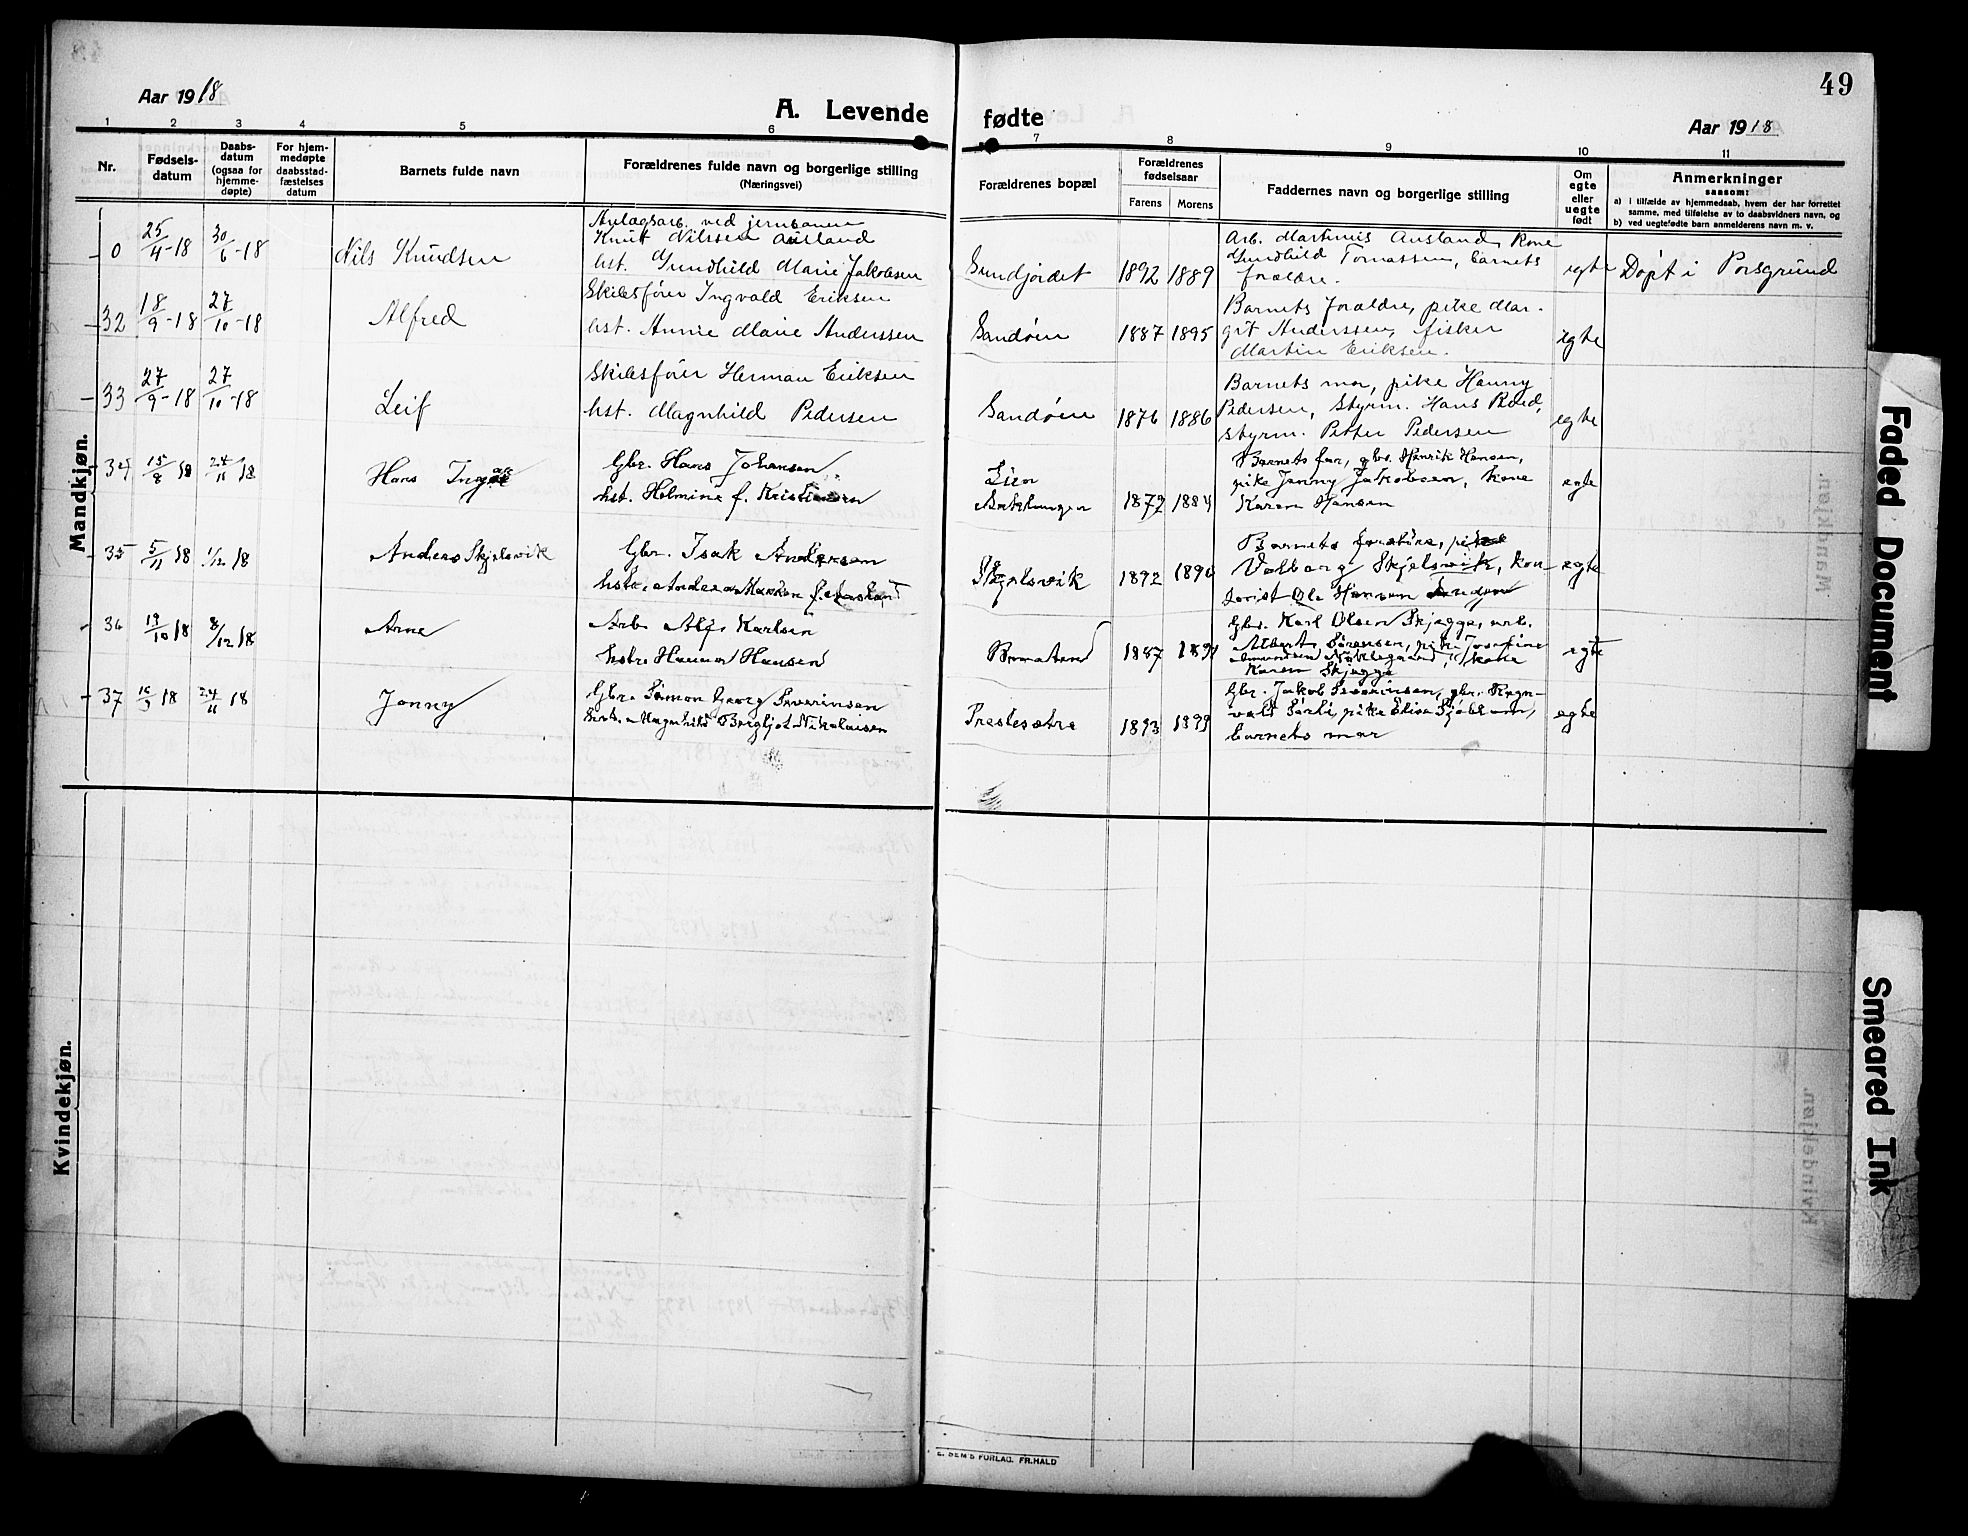 49
Aar 1918
A. Levende
fødte
Aar 1918
1 2 3 4 5 6 7 8 9 10 11
Nr.
Fødsels-
datum
Daabs-
datum
(ogsaa for
hjemme-
døpte)
For hjem-
medøpte
daabsstad-
fæstelses
datum
Barnets fulde navn
Forældrenes fulde navn og borgerlige stilling
(Næringsvei)
Forældrenes bopæl
Forældrenes
fødselsaar
Farens Morens
Faddernes navn og borgerlige stilling
Om
egte
eller
uegte
født
Anmerkninger
saasom:
a) i tilfælde av hjemmedaab, hvem der har forrettet
samme, med tilføielse av to daabsvidners navn, og
b) ved uegtefødte barn anmelderens navn m. v.
Mandkjøn.
0 25/4-18 30/6-18 Nils Knudsen
Anlægsarb. ved jernbanen
Knut Nilssen Ausland
hst. Gundhild Marie Jakobsen
Sundjordet 1892 1889
Arb. Martinus Ausland, kone
Gundhild Tomassen, barnets
forældre.
egte Døpt i Porsgrund
32 18/9-18 27/10-18 Alfred
Skibsfører Ingvald Eriksen
hst. Annie Marie Anderssen
Sandøen 1887 1895
Barnets forældre, pike Mar-
git Anderssen, fisker
Martin Eriksen.
egte
33 27/9-18 27/10-18 Leif
Skibsfører Herman Eriksen
hst. Magnhild Pedersen
Sandøen 1876 1886
Barnets mor, pike Hanny
Pedersen, styrm. Hans
styrm. Petter Pedersen
egte
34 15/8 18 24/11 18 Hans
Gbr. Hans Johansen
hst. Helmine f. Kristiansen
Lien
1872 1884
Barnets far, gbr. Henrik Hansen,
pike Jenny Jakobsen, kone
Karen Hansen
egte
35 5/11 18 1/12 18 Anders Skjelsvik
Gbr. Isak Andersen
hstr.
Skjelsvik 1892
Barnets forældre, pike
Valborg Skjelsvik, kon-
torist Ole Hansen
egte
36 19/10 18 8/12 18 Arne
Arb. Alf Karlsen
hstr. Hanna Hansen
1887
Gbr. Karl Olsen Skjegge, arb.
Albert Sørensen, pike Josefine
kone
Karen Skjegge
egte
37 18 24/11 18 Jonny
Gbr. Simon Georg Severinsen
hstr. Magnhild Bergljot Nikolaisen
Prestesætre 1893 1899
Gbr. Jakob Severinsen, gbr. Ragn-
vald Sørli, pike Elisa
barnets mor
egte
Kvindekjøn.
E. SEM'S FORLAG. FR.HALD
Faded Document
Smeared Ink